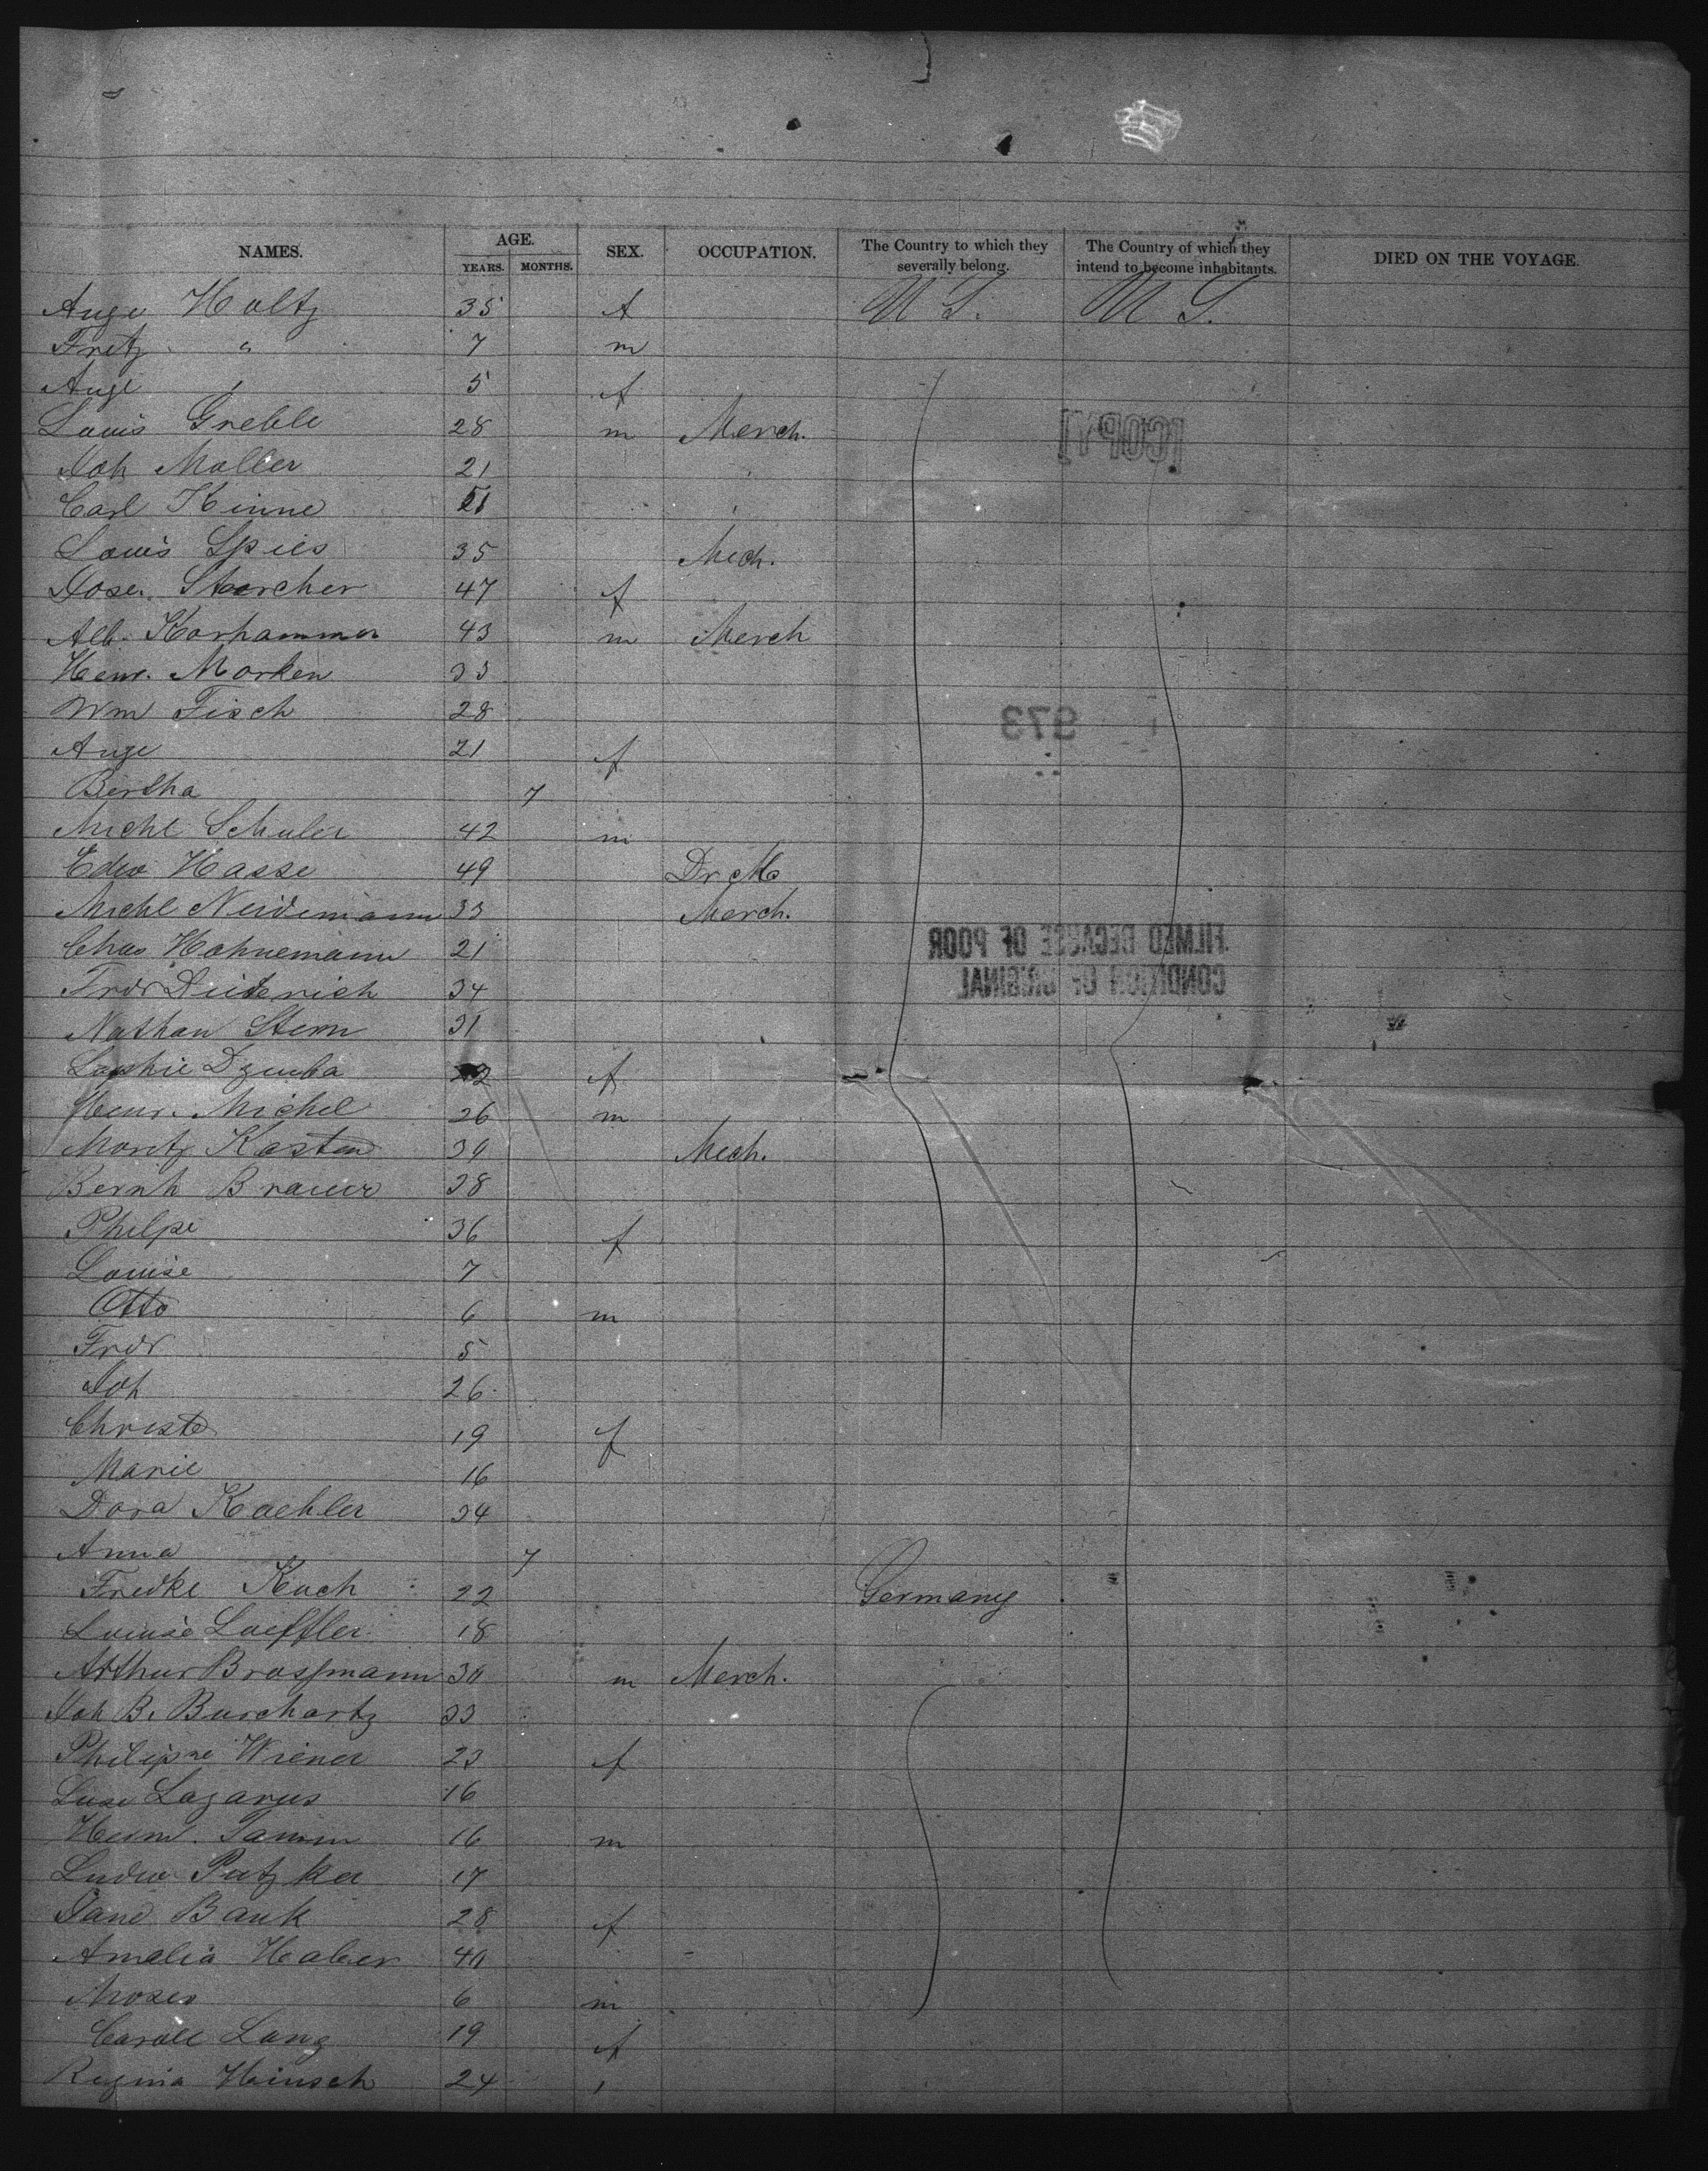 NAMES. AGE. YEARS. MONTHS. SEX. OCCUPATION. The Country to which they severally belong. The Country of which they intend to become inhabitants. DIED ON THE VOYAGE.
Auge Holtz 35 f U S. U S.
Fritz " 7 m
Auge " 5 f
Louis Greble 28 m Merch.
Joh Moller 21
Carl Kinne 51
Louis Spies 35 Mech.
Storcher 47 f
Alb. Korhammer 43 m Merch
Henr. Morken 33
Wm Fisch 28
Auge 21 f
Bertha 7
Michl Schuler 42 m
Edw Hasse 49
Michl Neidemann 33 Merch.
Chas Hahnemann 21
Fredr Diederich 34
Nathan Stern 31
Sophie Dzuba 22 f
Henr. Michel 26 m
Moritz Kasten 30 Mech.
Bernh Brauer 38
Philpe 36 f
Louise 7
Otto 6 m
Fredr 5
Joh 26
Christe 19 f
Marie 16
Dora Kaehler 34
Anna 7
Fredke Koch 22 Germany
Louise Loeffler 18
Arthur Brossmann 30 m Merch.
Joh B. Burchartz 33
Philipne Wiener 23 f
Lazarus 16
Herm. Tamm 16 m
Ludw Patzker 17
Jane Bank 28 f
Amalia Haber 40
Moses 6 m
Carole Lang 19 f
Regina Hinsch 24 "
[COPY]
973
FILMED BECAUSE OF POOR
CONDITION OF ORIGINAL